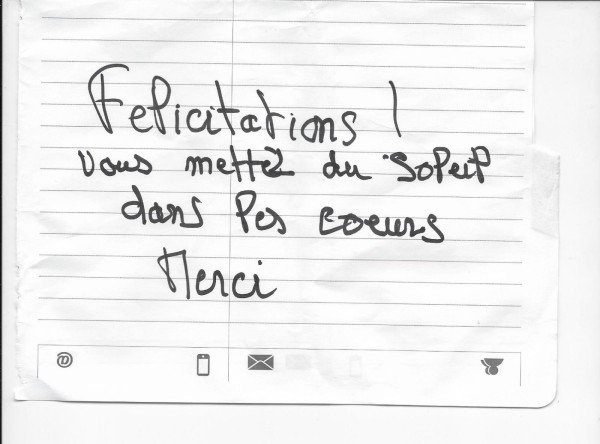 Felicitations !
Vous mettez du soleil
dans les coeurs
Merci